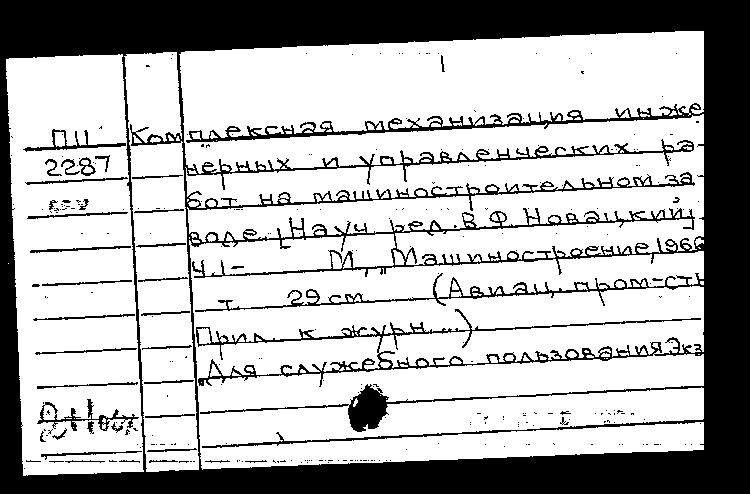 П11 Комплексная механизация инже
2287 нерных и управленческих ра-
бот на машиностроительном за-
воде. [Науч. ред. В.Ф. Новацкий].
Ч. 1- М., "Машиностроение, 1966
т. 29 см. (Авиац. пром-сть
Прил. к журн...).
"Для служебного пользования. Экз